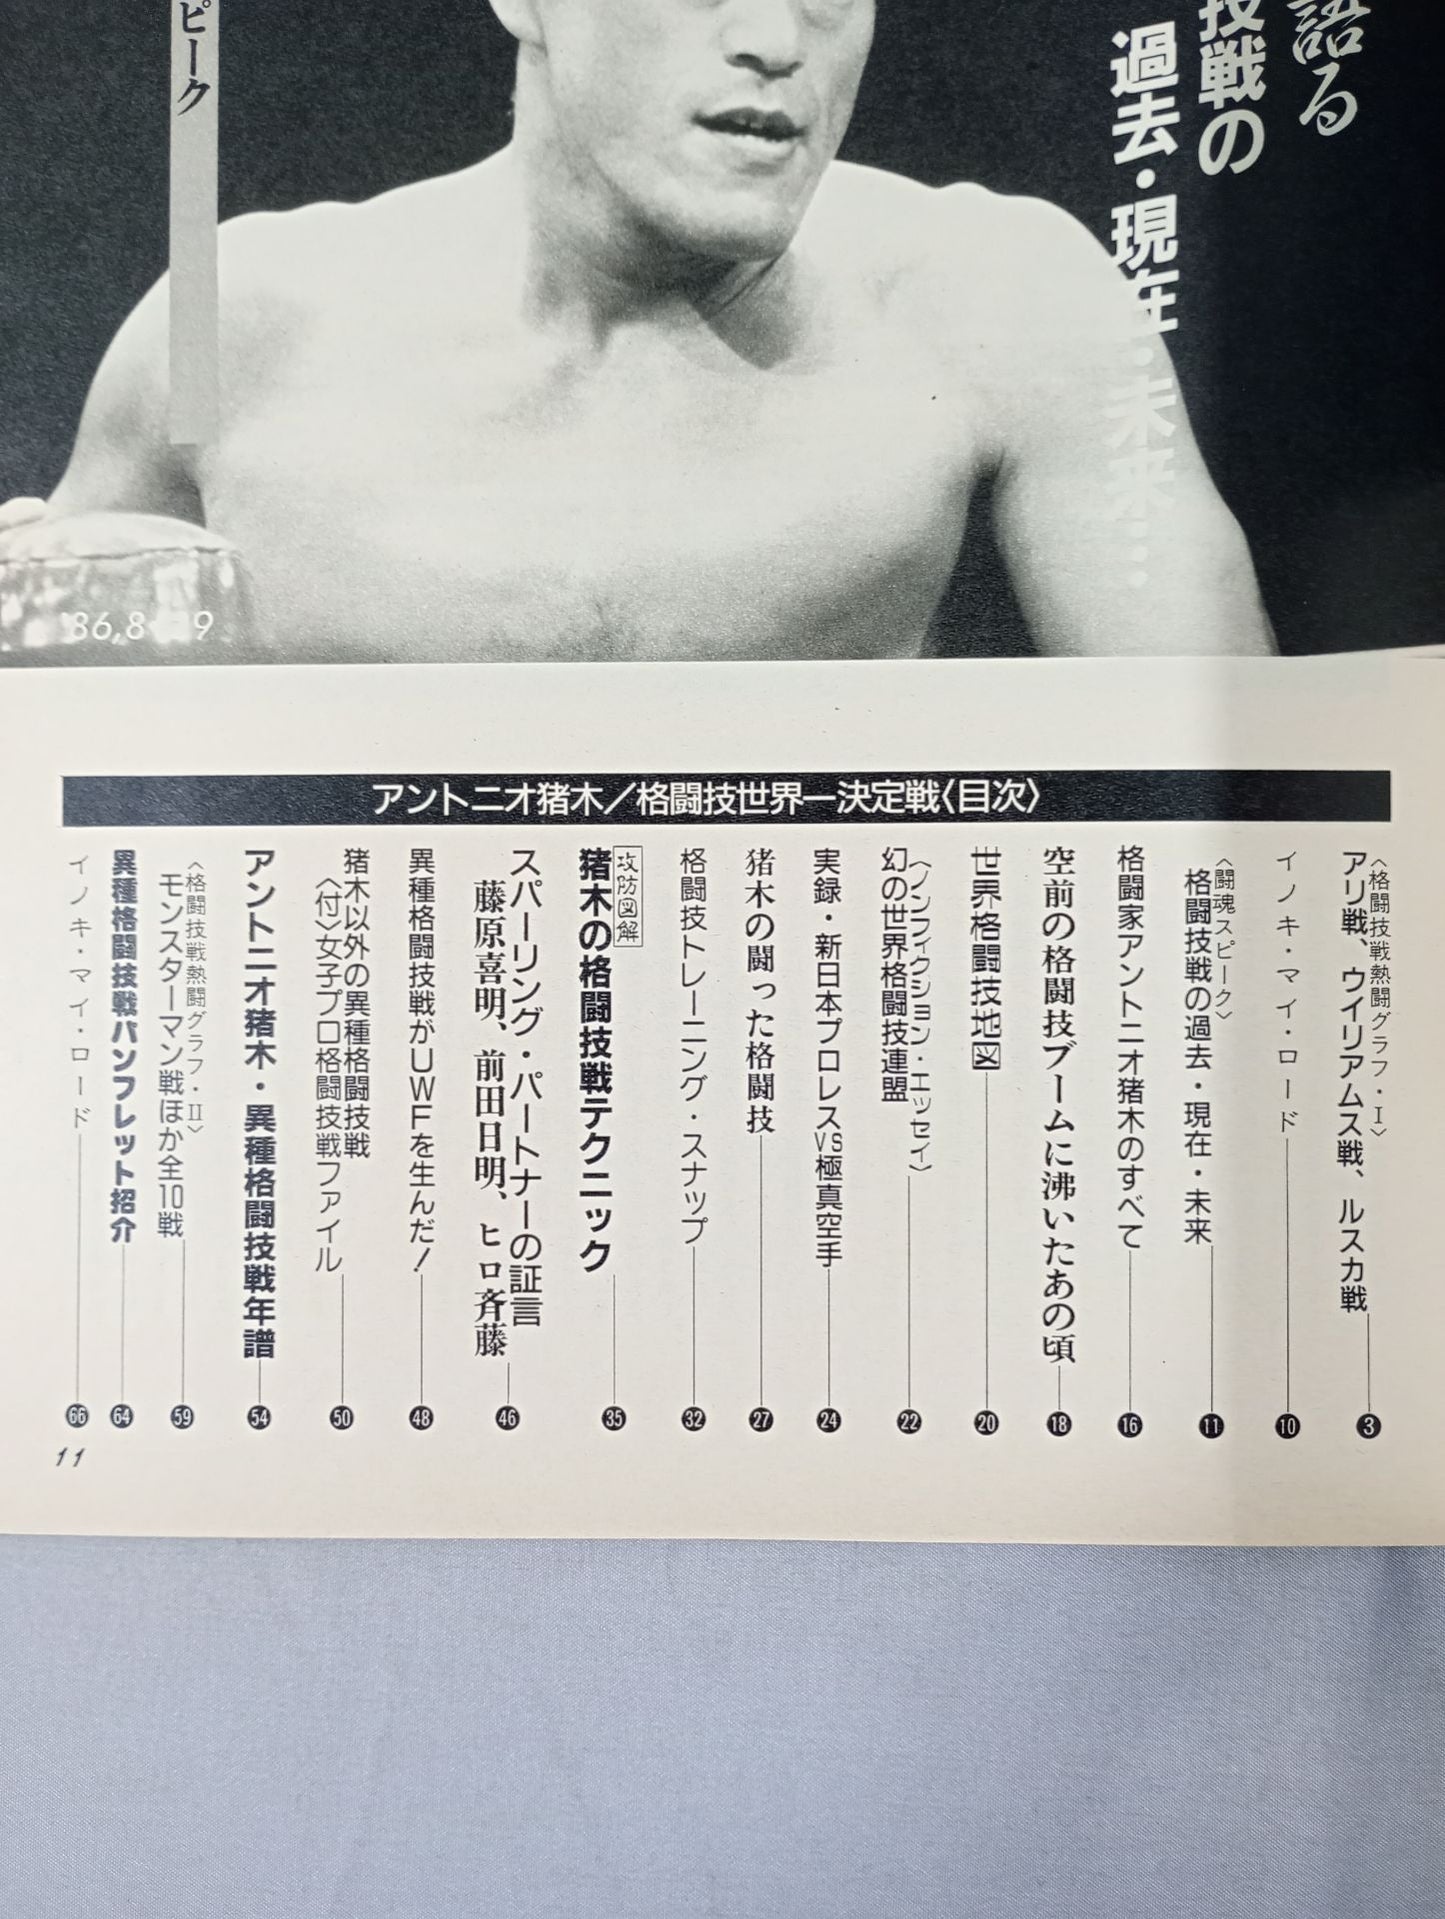 語る
技戦の
過去・現在・未来…
ピーク
アントニオ猪木／格闘技世界一決定戦〈目次〉
〈格闘技戦熱闘グラフ・Ⅰ〉
アリ戦、ウイリアムス戦、ルスカ戦
3
イノキ・マイ・ロード
10
〈闘魂スピーク〉
格闘技戦の過去・現在・未来
11
格闘家アントニオ猪木のすべて
16
空前の格闘技ブームに沸いたあの頃
18
世界格闘技地図
20
〈ノンフィクション・エッセイ〉
幻の世界格闘技連盟
22
実録・新日本プロレスVS極真空手
24
猪木の闘った格闘技
27
格闘技トレーニング・スナップ
32
攻防図解
猪木の格闘技戦テクニック
35
スパーリング・パートナーの証言
藤原喜明、前田日明、ヒロ斉藤
46
異種格闘技戦がUWFを生んだ！
48
猪木以外の異種格闘技戦
〈付〉女子プロ格闘技戦ファイル
50
アントニオ猪木・異種格闘技戦年譜
54
〈格闘技戦熱闘グラフ・Ⅱ〉
モンスターマン戦ほか全10戦
59
異種格闘技戦パンフレット紹介
64
イノキ・マイ・ロード
66
11